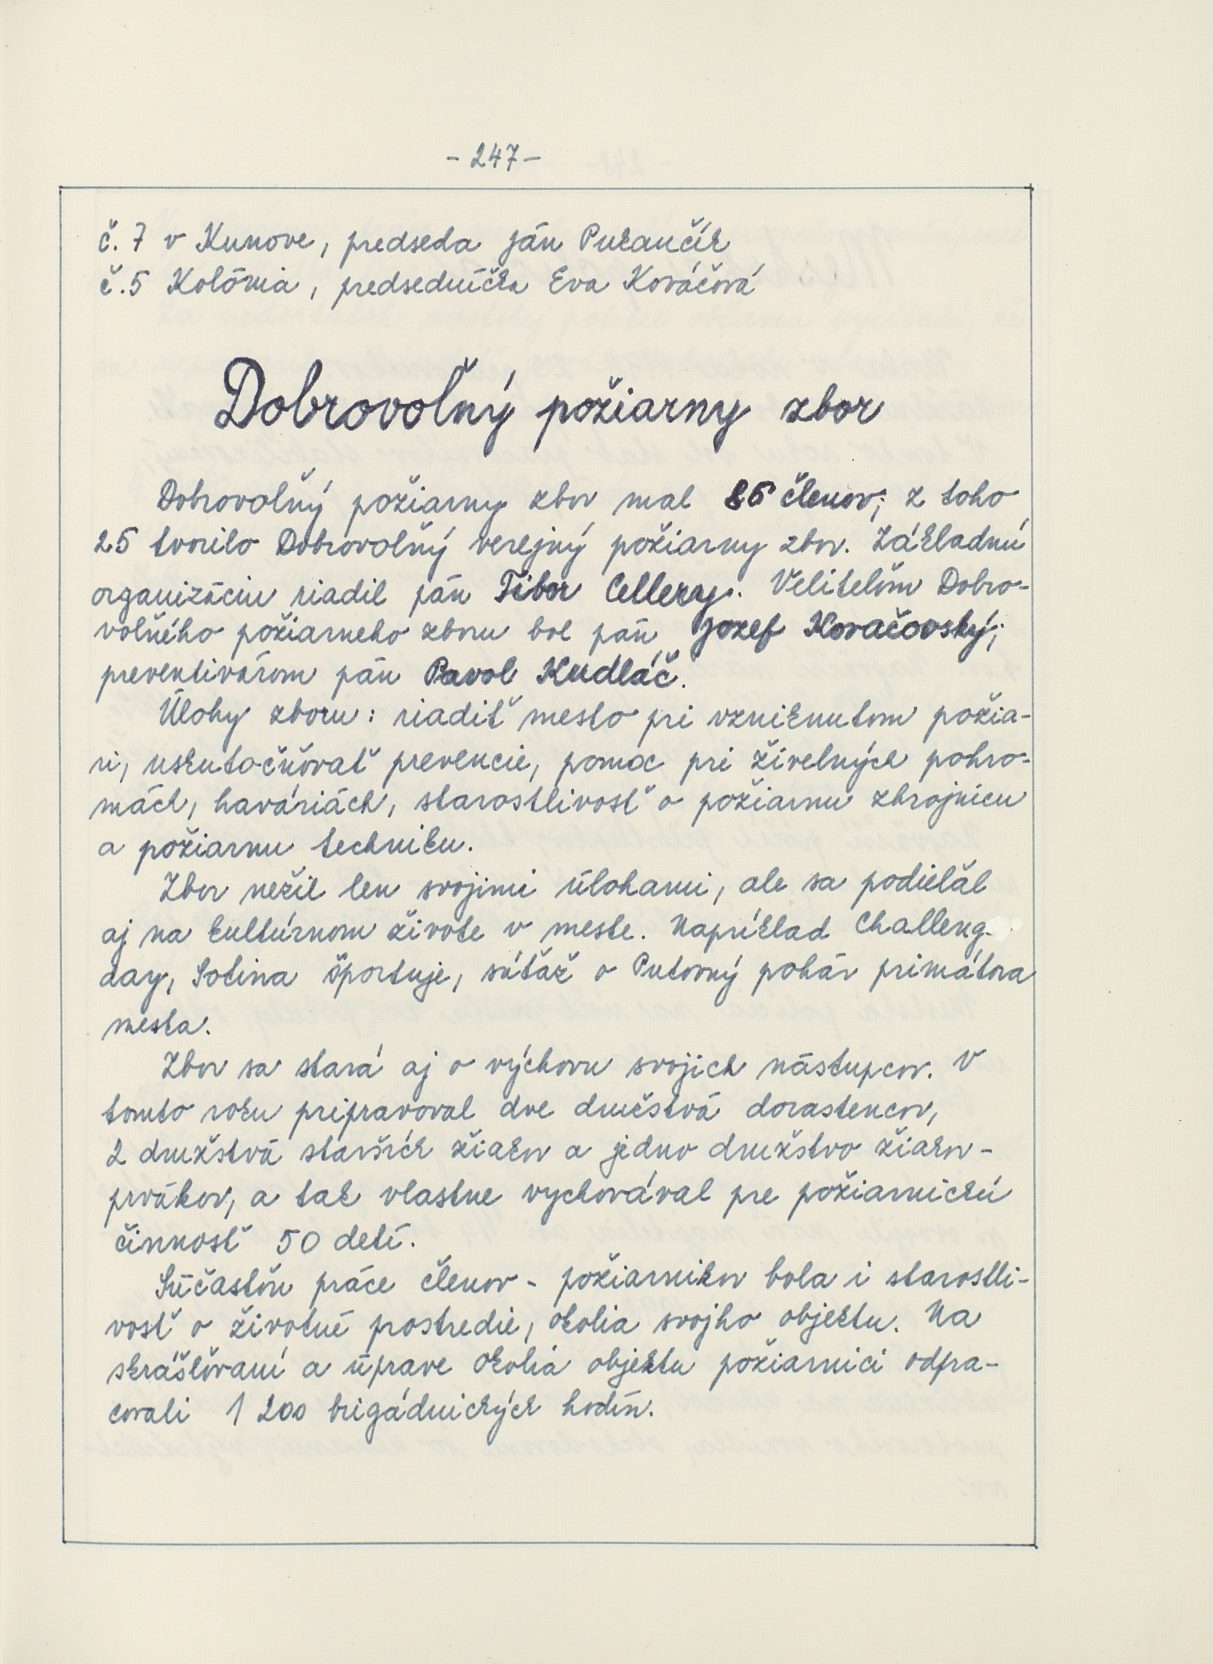 - 247 -
č. 7 v Kunove, predseda Ján Pukančík
č. 5 Kolónia, predsedníčka Eva Kováčová
Dobrovoľný požiarny zbor
Dobrovoľný požiarny zbor mal 85 členov; z toho
25 tvorilo Dobrovoľný verejný požiarny zbor. Základnú
organizáciu riadil pán Tibor Cellery. Veliteľom Dobro-
voľného požiarneho zboru bol pán Jozef Kovačovský;
preventivárom pán Pavol Kudláč.
Úlohy zboru: riadiť mesto pri vzniknutom požia-
ri, uskutočňovať prevencie, pomoc pri živelných pohro-
mách, haváriách, starostlivosť o požiarnu zbrojnicu
a požiarnu techniku.
Zbor nežil len svojimi úlohami, ale sa podieľal
aj na kultúrnom živote v meste. Napríklad Challeng-
day, Sotina športuje, súťaž o Putovný pohár primátora
mesta.
Zbor sa stará aj o výchovu svojich nástupcov. V
tomto roku pripravoval dve družstvá dorastencov,
2 družstvá starších žiakov a jedno družstvo žiakov -
prvákov, a tak vlastne vychovával pre požiarnickú
činnosť 50 detí.
Súčasťou práce členov - požiarnikov bola i starostli-
vosť o životné prostredie, okolia svojho objektu. Na
skrášľovaní a úprave okolia objektu požiarnici odpra-
covali 1 200 brigádnických hodín.